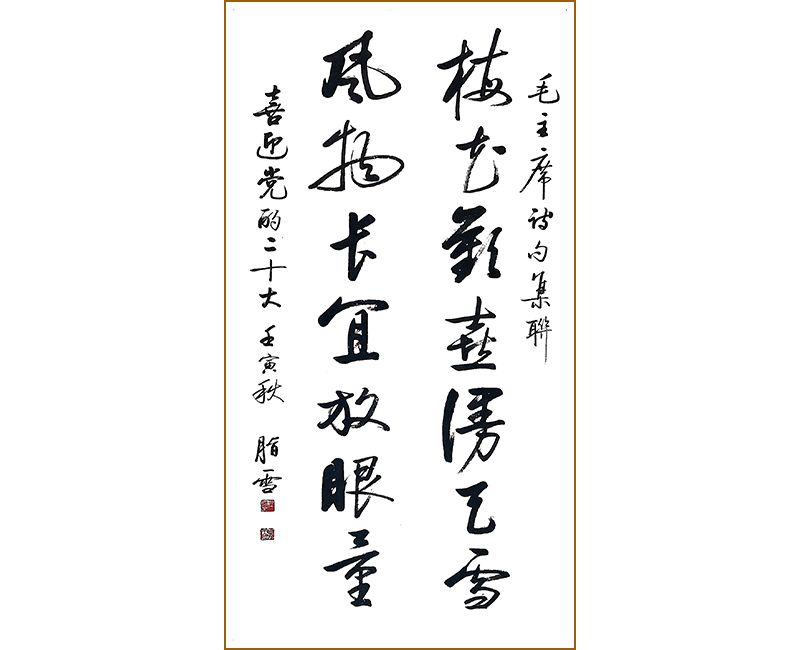 毛主席诗句集聯
梅花歡喜漫天雪
风物长宜放眼量
喜迎党的二十大 壬寅秋 脂雪